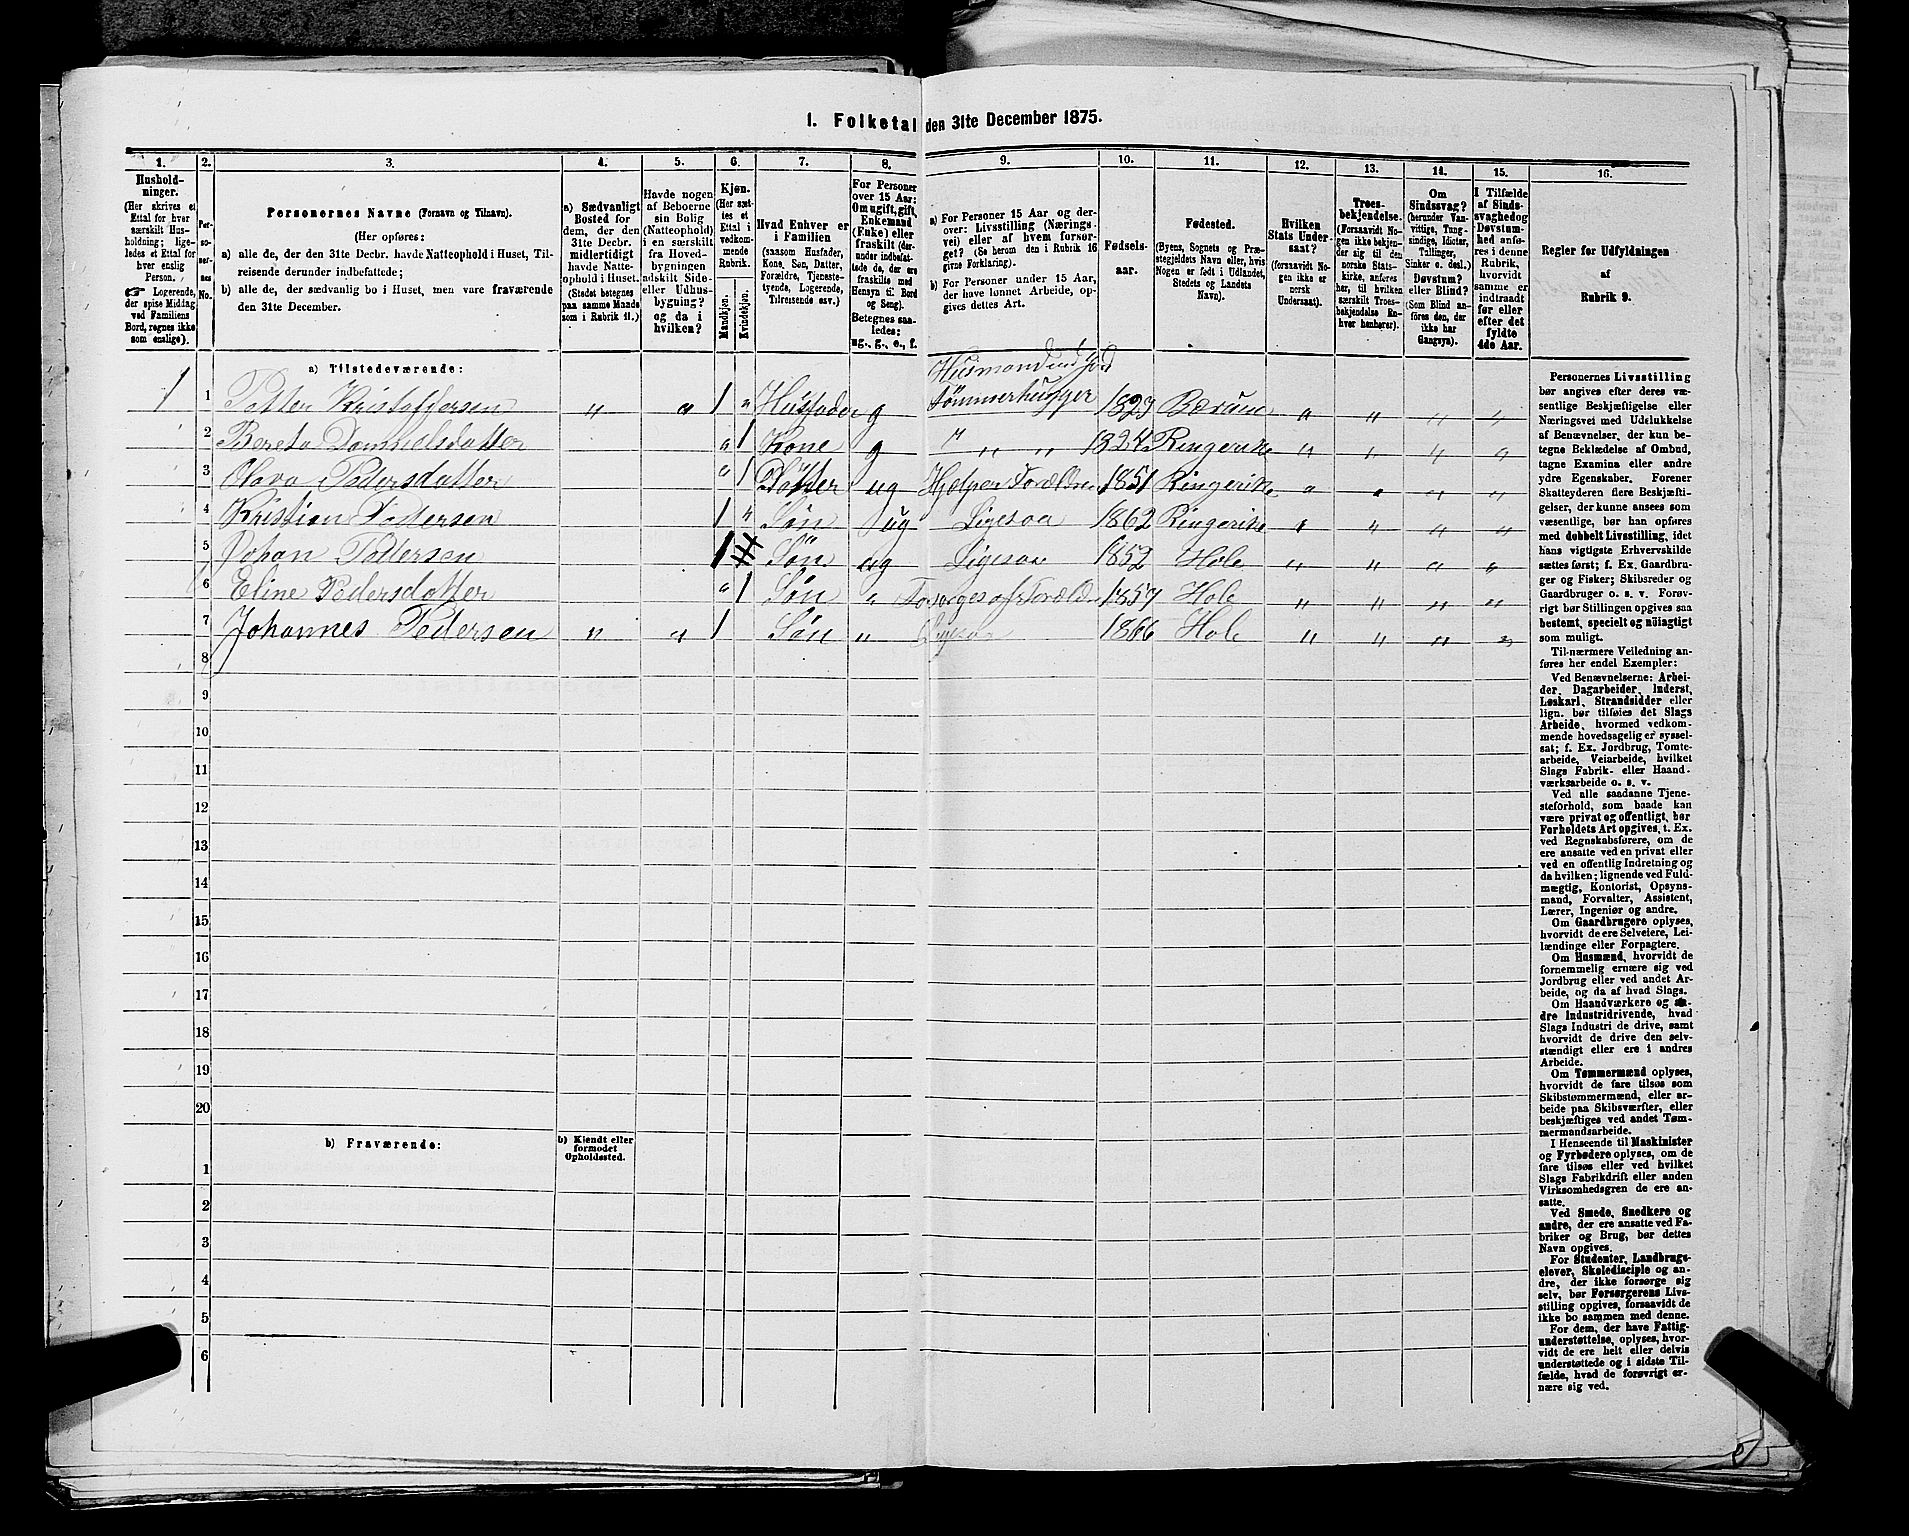 1. Folketal den 31te December 1875.
1. 2. 3. 4. 5. 6. 7. 8. 9. 10. 11. 12. 13. 14. 15. 16.
Hushold-
ninger.
(Her skrives et
Ettal for hver
særskilt Hus-
holdning; lige-
ledes et Ettal for
hver enslig
Person.
☞ Logerende,
der spise Middag
ved Familiens
Bord, regnes ikke
som enslige).
Per-
so-
ner-
nes
No.
Personernes Navne (Fornavn og Tilnavn).
(Her opføres:
a) alle de, der den 31te Decbr. havde Natteophold i Huset, Til-
reisende derunder indbefattede;
b) alle de, der sædvanlig bo i Huset, men vare fraværende
den 31te December.
a) Sædvanligt
Bosted for
dem, der den
31te Decbr.
midlertidigt
havde Natte-
ophold i Huset.
(Stedet betegnes
paa samme Maade
som i Rubrik 11.)
Havde nogen
af Beboerne
sin Bolig
(Natteophold)
i en særskilt
fra Hoved-
bygningen
adskilt Side-
eller Udhus-
bygning?
og da i
hvilken?
Kjøn.
(Her sæt-
tes et
Ettal i
vedkom-
mende
Rubrik.
Mandkjøn.
Kvindekjøn.
Hvad Enhver er
i Familien
(saasom Husfader,
Kone, Søn, Datter,
Forældre, Tjeneste-
tyende, Logerende,
Tilreisende osv.)
For Personer
over 15 Aar:
Om ugift, gift,
Enkemand
(Enke) eller
fraskilt (der-
under indbefat-
tede de, der ere
fraskilte med
Hensyn til Bord
og Seng).
Betegnes saa-
ledes:
ug., g., e., f.
a) For Personer 15 Aar og der-
over: Livsstilling (Nærings-
vei) eller af hvem forsør-
get? (Se herom den i Rubrik 16
givne Forklaring).
b) For Personer under 15 Aar,
der have lønnet Arbeide, op-
gives dettes Art.
Fødsels-
aar.
Fødested.
(Byens, Sognets og Præ-
stegjeldets Navn eller, hvis
Nogen er født i Udlandet,
Stedets og Landets
Navn).
Hvilken
Stats Under-
saat?
(forsaavidt No-
gen ikke er
norsk
Undersaat).
Troes-
bekjendelse.
(Forsaavidt No-
gen ikke bekjen-
der sig til den
norske Stats-
kirke, anføres
her, til hvilken
særskilt Troes-
bekjendelse En-
hver henhører).
Om
Sindssvag?
(herunder Van-
vittige, Tung-
sindige, Idioter,
Tullinger,
Sinker o. desl.)
Døvstum?
eller Blind?
(Som Blind an-
føres den, der
ikke har
Gangsyn).
I Tilfælde
af Sinds-
svaghed og
Døvstum-
hed anfø-
res i denne
Rubrik,
hvorvidt
samme er
indtraadt
før eller
efter det
fyldte
4de Aar.
Regler for Udfyldningen
af
Rubrik 9.
a) Tilstedeværende:
Husmand med Jord
1 1 Petter Kristofersen „ „ 1 „ Husfader g Tømmerhugger 1823 Bærum „ „ „ „
2 Berete Danielsdatter „ 1 Kone g „ „ „ 1824 Ringerike „ „ „ „
3 Olava Pedersdatter „ 1 Datter ug Hjelper Forældre 1851 Ringerike „ „ „ „
4 Kristian Pedersen 1 „ Søn ug Ligesaa 1862 Ringerike „ „ „ „
5 Johan Pettersen 1 Søn ug Ligesaa 1852 Hole „ „ „ „
6 Eline Pedersdatter „ 1 Søn „ Forsørges af Forældre 1857 Hole „ „ „ „
7 Johannes Pedersen „ „ 1 Søn „ Ligesaa 1866 Hole „ „ „ „
8
9
10
11
12
13
14
15
16
17
18
19
20
b) Fraværende:
b) Kjendt eller
formodet
Opholdssted.
1
2
3
4
5
6
Personernes Livsstilling
bør angives efter deres væ-
sentlige Beskjæftigelse eller
Næringsvei med Udelukkelse
af Benævnelser, der kun be-
tegne Beklædelse af Ombud,
tagne Examina eller andre
ydre Egenskaber. Forener
Skatteyderen flere Beskjæfti-
gelser, der kunne ansees som
væsentlige, bør han opføres
med dobbelt Livsstilling, idet
hans vigtigste Erhvervskilde
sættes først; f. Ex. Gaardbru-
ger og Fisker; Skibsreder og
Gaardbruger o. s. v. Forøv-
rigt bør Stillingen opgives saa
bestemt, specielt og nøiagtigt
som muligt.
Til nærmere Veiledning an-
føres her endel Exempler:
Ved Benævnelserne: Arbei-
der, Dagarbeider, Inderst,
Løskarl, Strandsidder eller
lign. bør tilføies det Slags
Arbeide, hvormed vedkom-
mende hovedsagelig er syssel-
sat; f. Ex. Jordbrug, Tomte-
arbeide, Veiarbeide, hvilket
Slags Fabrik- eller Haand-
værksarbeide o. s. v.
Ved alle saadanne Tjene-
steforhold, som baade kan
være privat og offentligt, bør
Forholdets Art opgives, t. Ex.
ved Regnskabsførere, om de
ere ansatte ved en privat eller
ved en offentlig Indretning og
da hvilken; lignende ved Fuld-
mægtig, Kontorist, Opsyns-
mand, Forvalter, Assistent,
Lærer, Ingeniør og andre.
Om Gaardbrugere oplyses,
hvorvidt de ere Selveiere, Lei-
lændinge eller Forpagtere.
Om Husmænd, hvorvidt de
fornemmelig ernære sig ved
Jordbrug eller ved andet Ar-
beide, og da af hvad Slags.
Om Haandværkere og an-
dre Industridrivende, hvad
Slags Industri de drive, samt
hvorvidt de drive den selv-
stændigt eller ere i andres
Arbeide.
Om Tømmermænd oplyses,
hvorvidt de fare tilsøs som
Skibstømmermænd, eller ar-
beide paa Skibsværfter, eller
beskjæftiges ved andet Tøm-
mermandsarbeide.
I Henseende til Maskinister
og Fyrbødere oplyses, om de
fare tilsøs eller ved hvilket
Slags Fabrikdrift eller anden
Virksomhedsgren de ere an-
satte.
Ved Smede, Snedkere og
andre, der ere ansatte ved Fa-
briker og Brug, bør dettes
Navn opgives.
For Studenter, Landbrugs-
elever, Skoledisciple og an-
dre, der ikke forsørge sig
selv, bør Forsørgerens Livs-
stilling opgives, forsaavidt de
ikke bo sammen med denne.
For dem, der have Fattig-
understøttelse, oplyses, hvor-
vidt de ere helt eller delvis
understøttede og i sidste Til-
fælde, hvad de forøvrigt er-
nære sig ved.